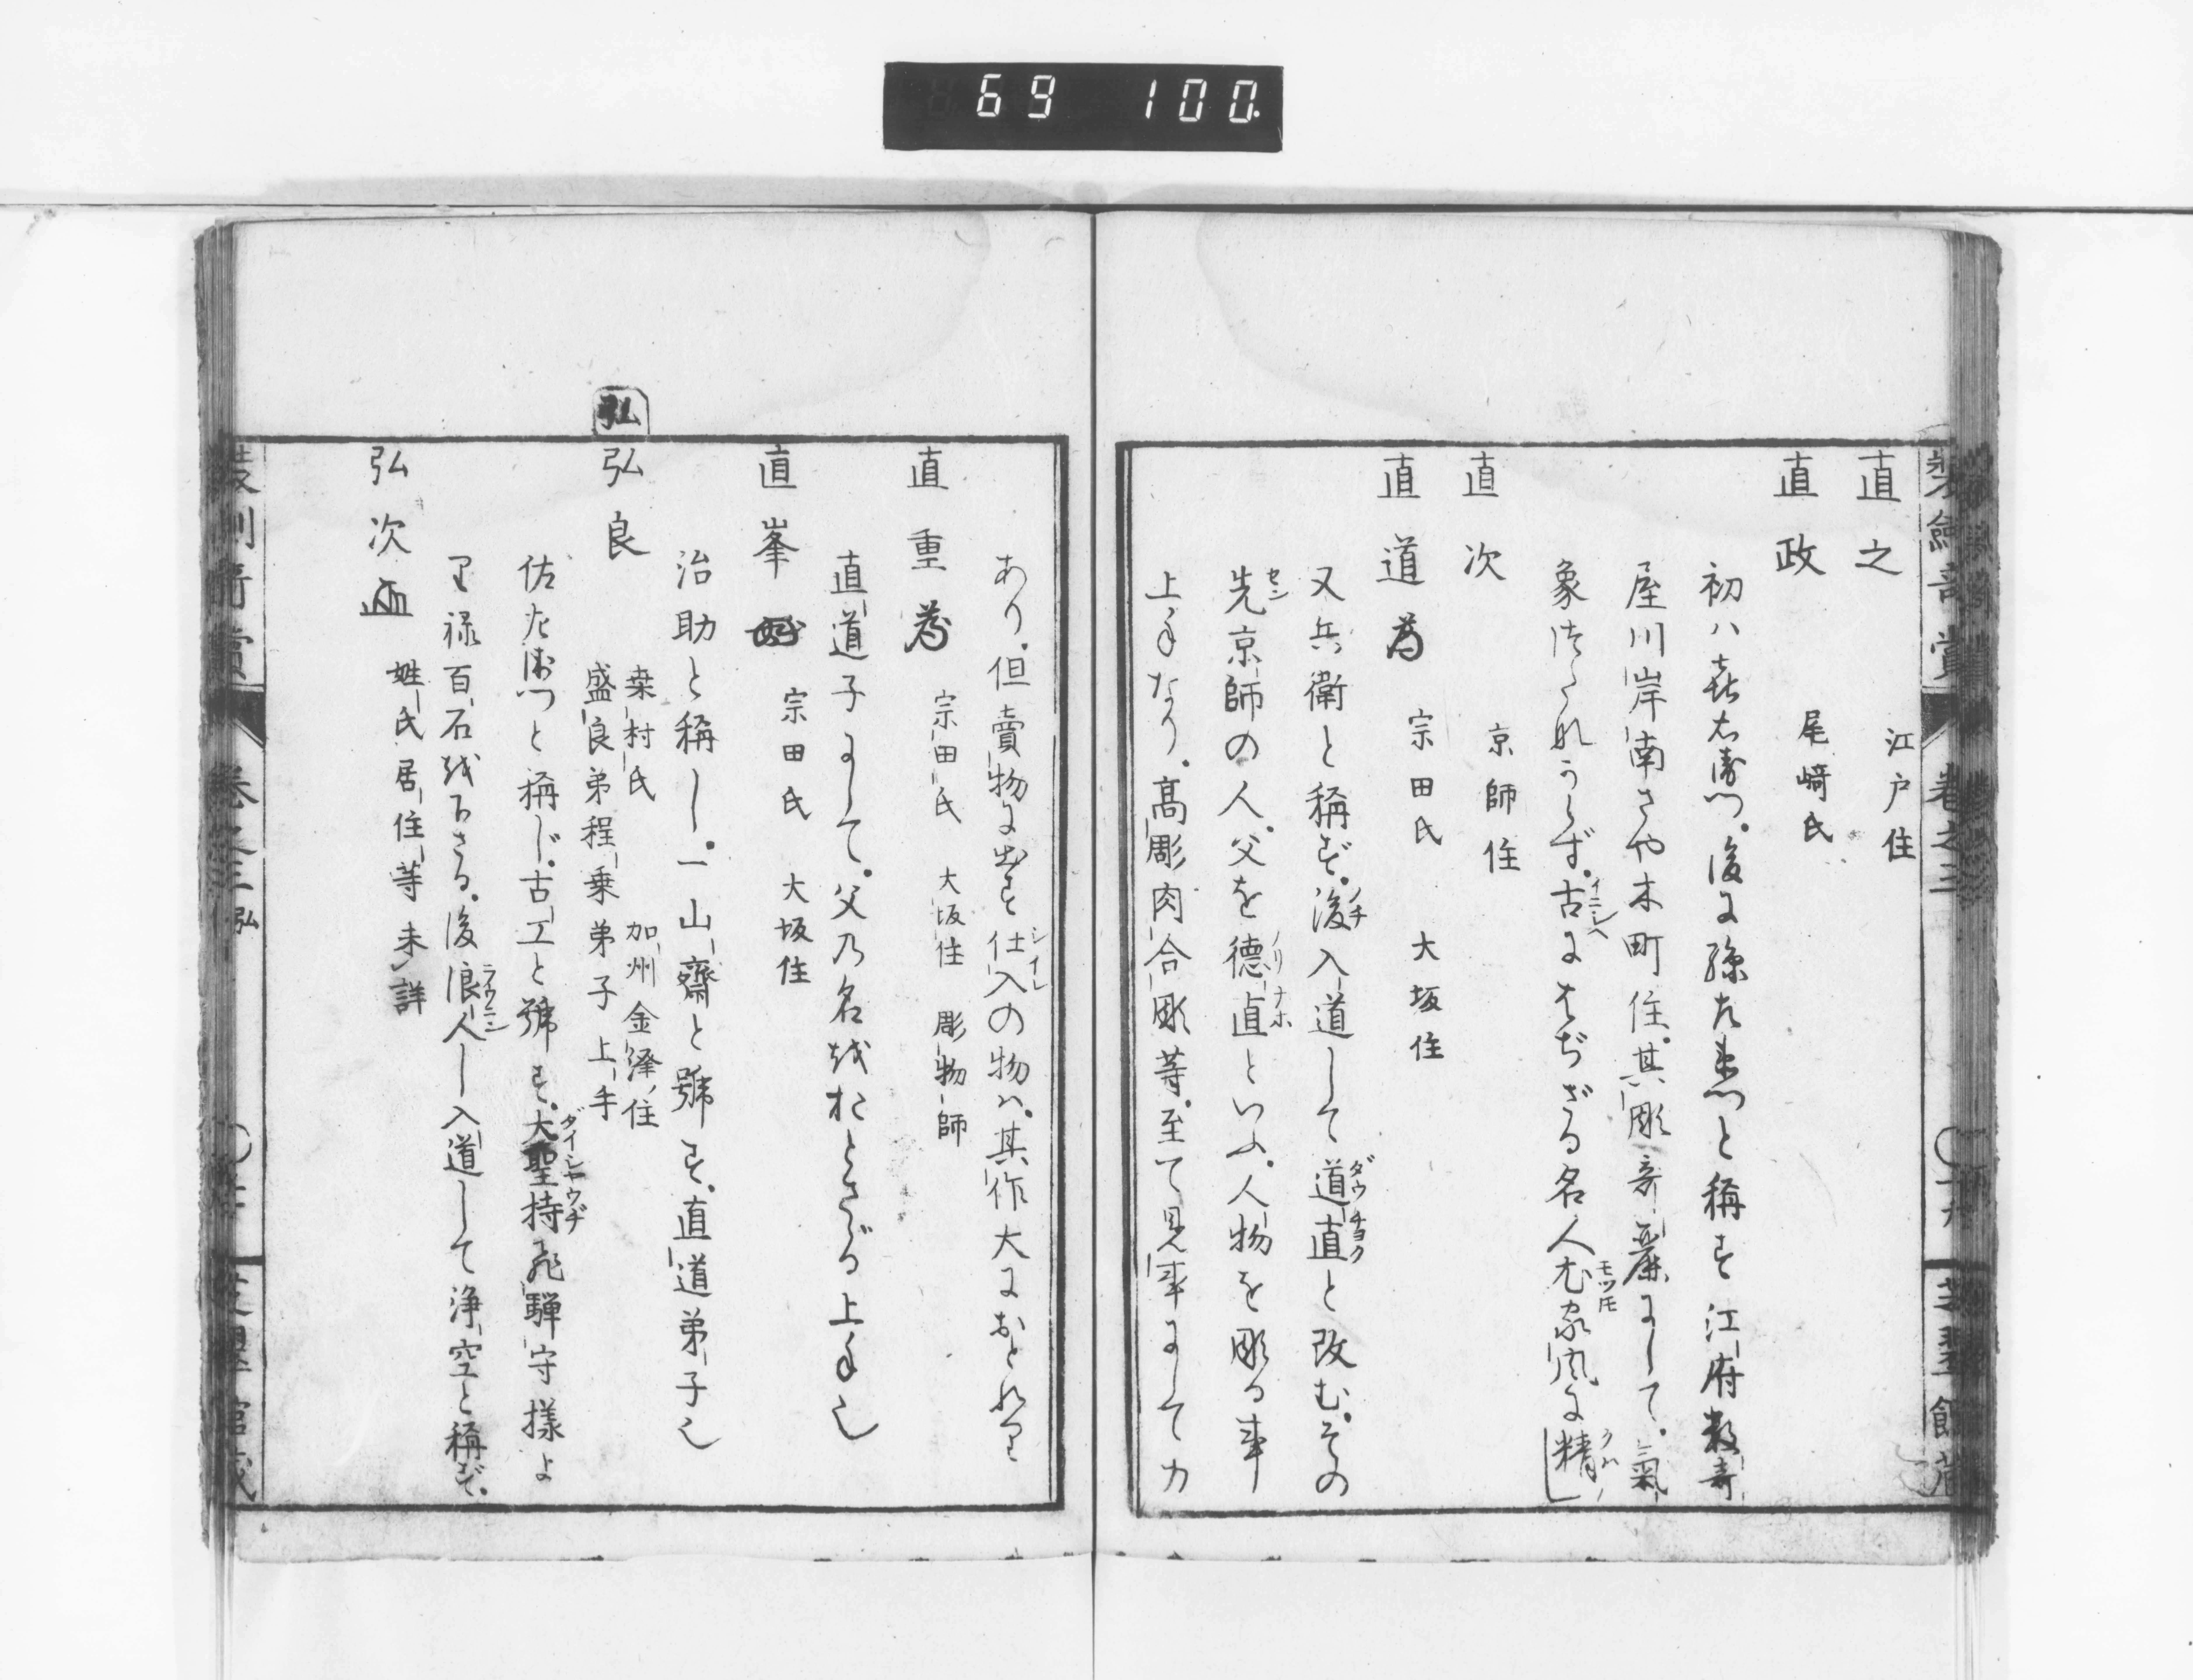 69 100.
直之 江戸住
直政 尾崎氏
初ハ喜右衛門。後に孫左衛門と称す江府数寄
屋川岸南さや木町住。其彫奇麗にして。氣
象けたれうらず。古にはぢざる名人尤家風に精
直次 京師住
直道 宗田氏 大坂住
又兵衛と稱ず。後入道して道直と改む。その
先京師の人。父を徳直といふ。人物を彫る事
上手なり。高彫肉合彫等。至て見事にして力
あり。但賣物に出す仕入の物ハ。其作大におとれり
直重 宗田氏 大坂住 彫物師
直道子にして。父乃名をおとさゞる上手也
直峯 宗田氏 大坂住
治助と稱し。一山齋と號す。直道弟子也
弘
弘良 桒村氏 加州金澤住
盛良弟程乗弟子上手
佐左衛門と稱じ。古工と號す。大聖持飛騨守様よ
り禄百石を下さる。後浪人し入道して浄空と稱ず。
弘次 姓氏居住等未詳
装劍奇賞 巻之三
芝翠館蔵